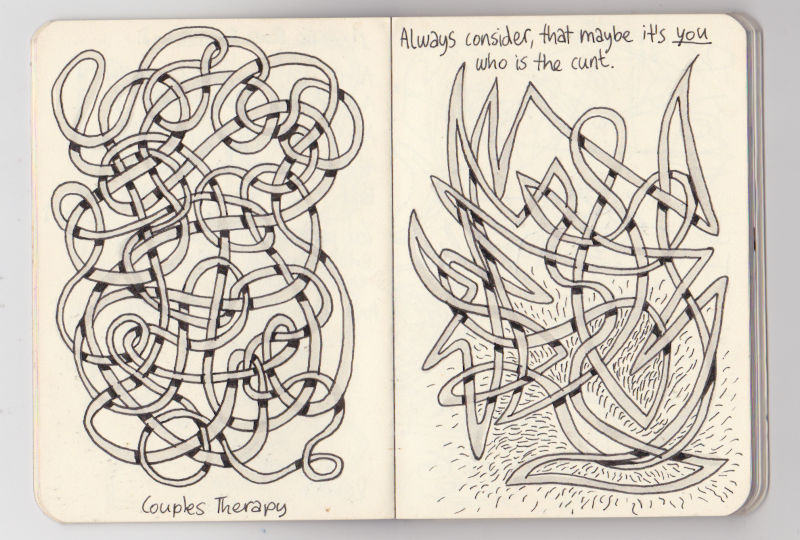 Couples Therapy
Always consider, that maybe it's you
who is the cunt.